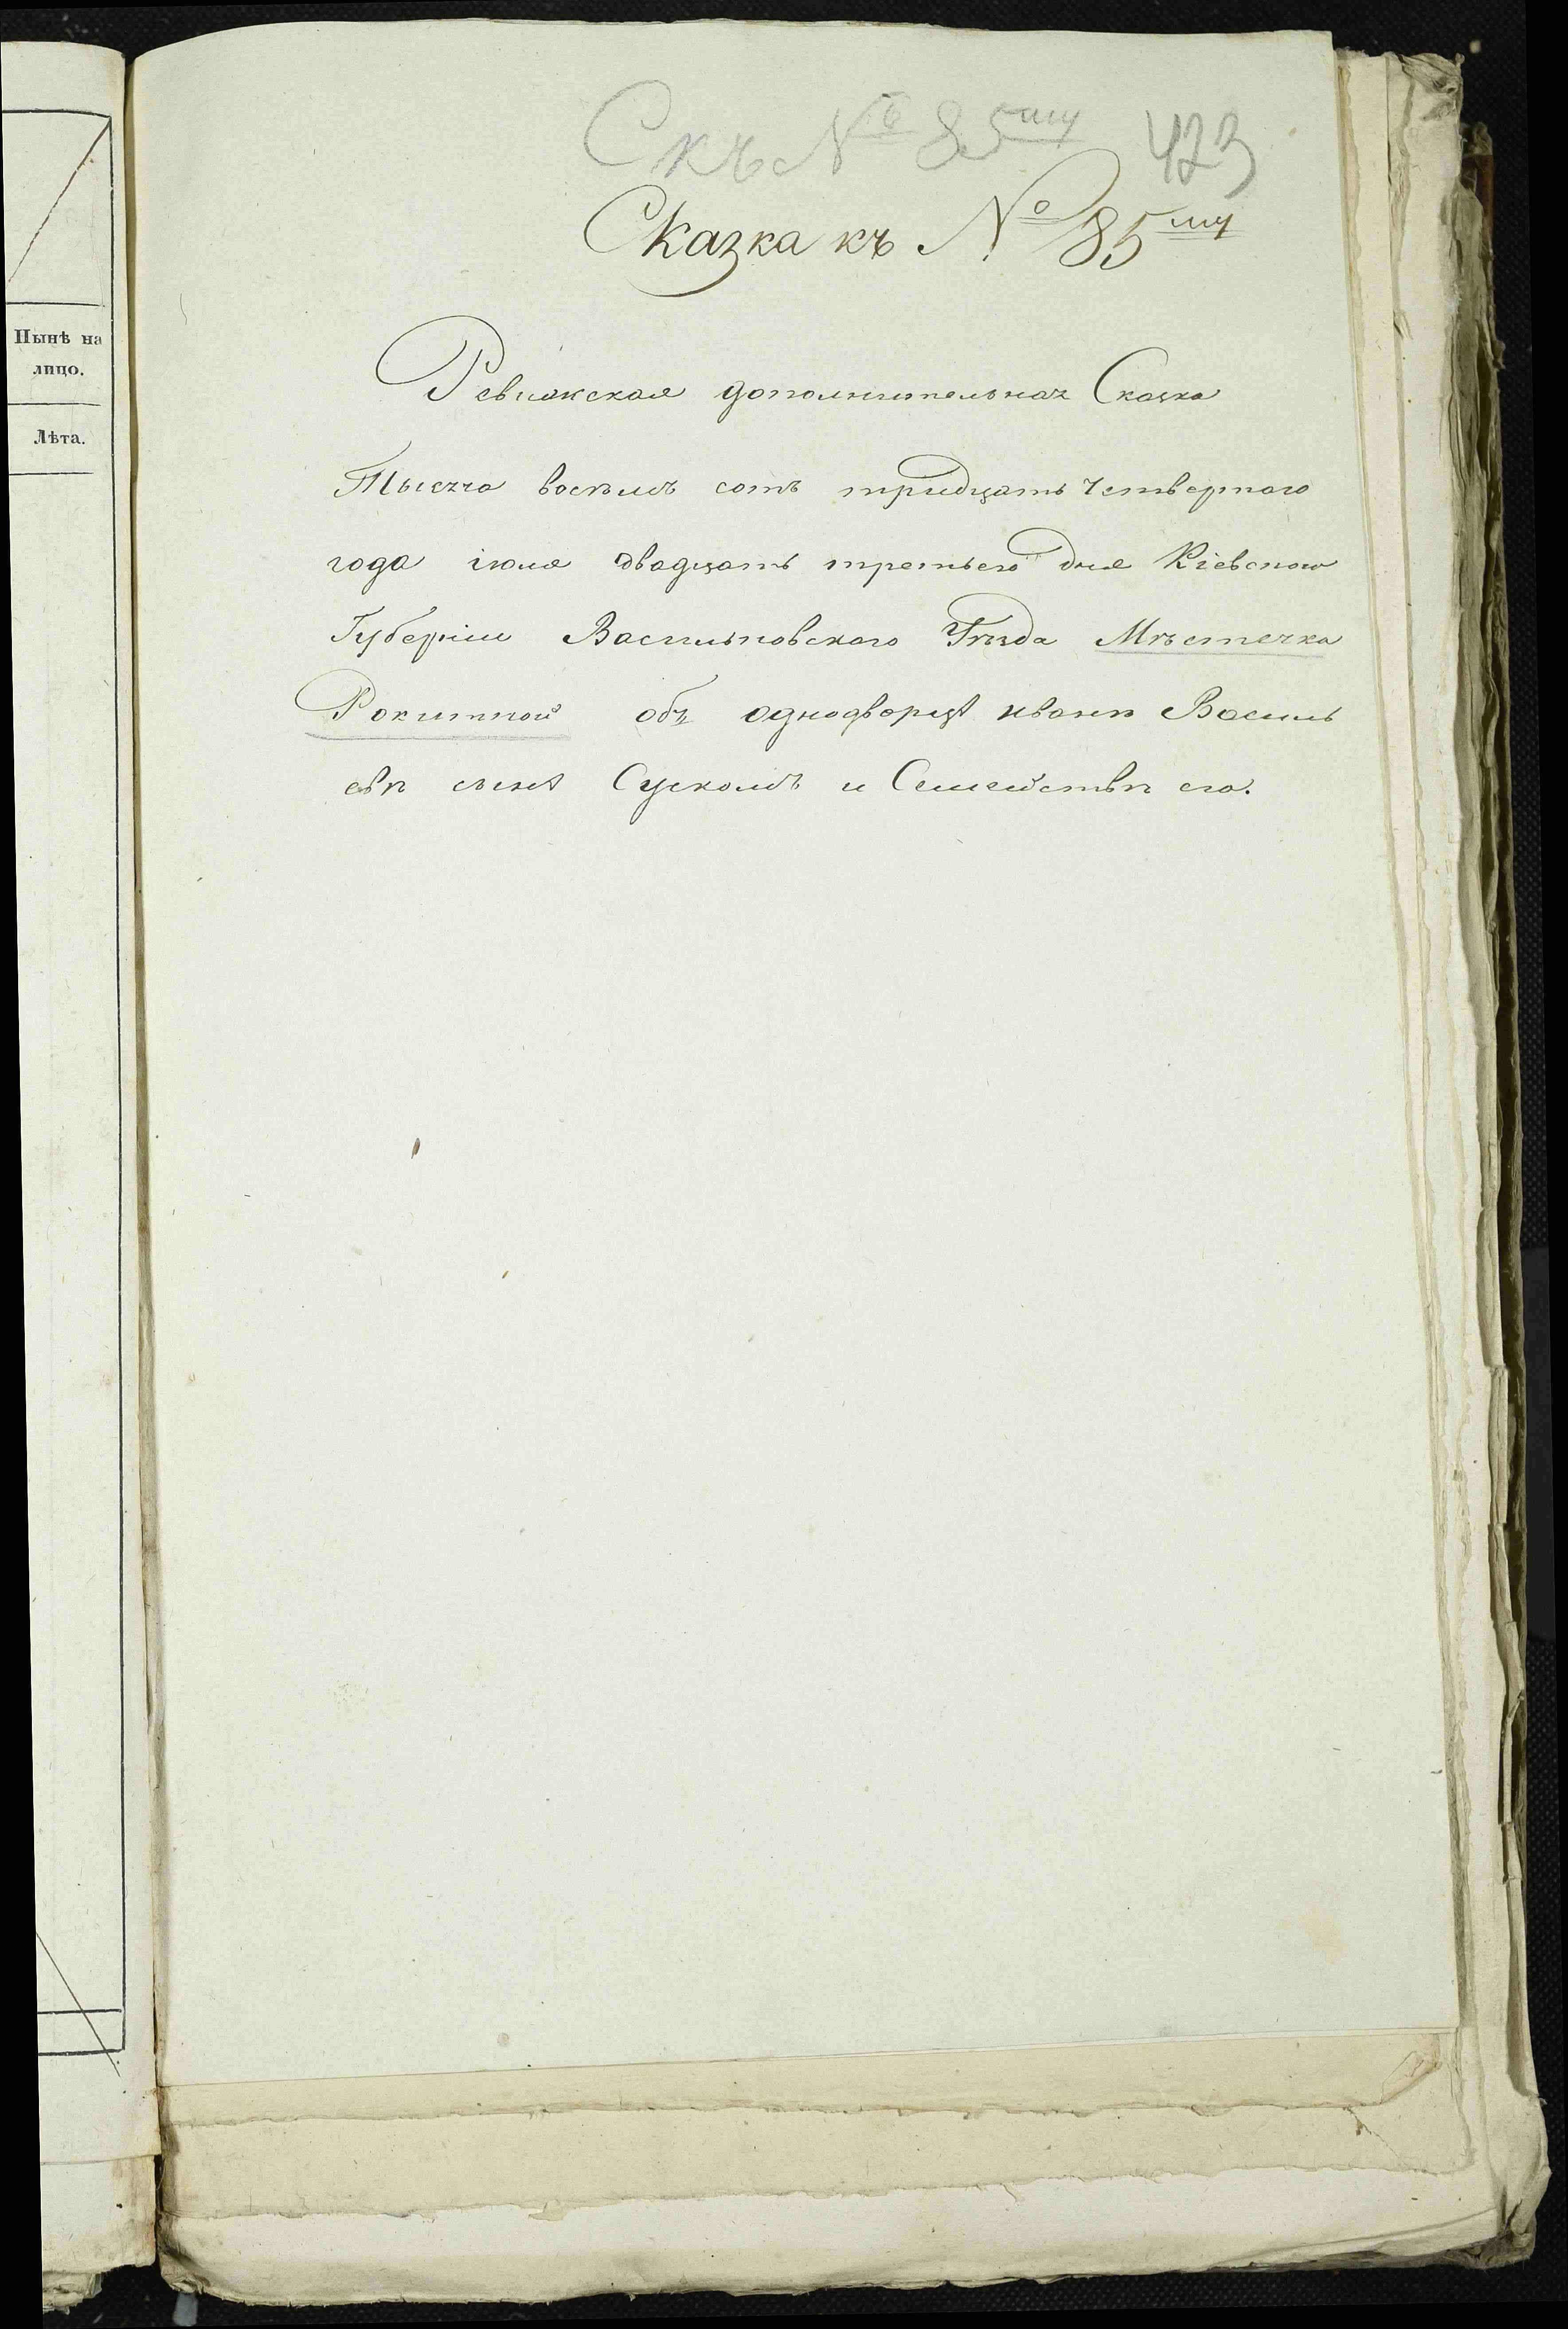 Нынѣ на
лицо.
Лѣта.
Ск къ № 85му 423
Сказка къ № 85му
Ревизская дополнительная Сказка
Тысяча восемъ сотъ тридцать четвертаго
года іюля двадцать третьего дня Кіевской
Губерніи Васильковского Уѣзда Мѣстечка
Рокитной объ однодворцѣ иванѣ Василь
евѣ сынѣ Сускомъ и Семействѣ его.